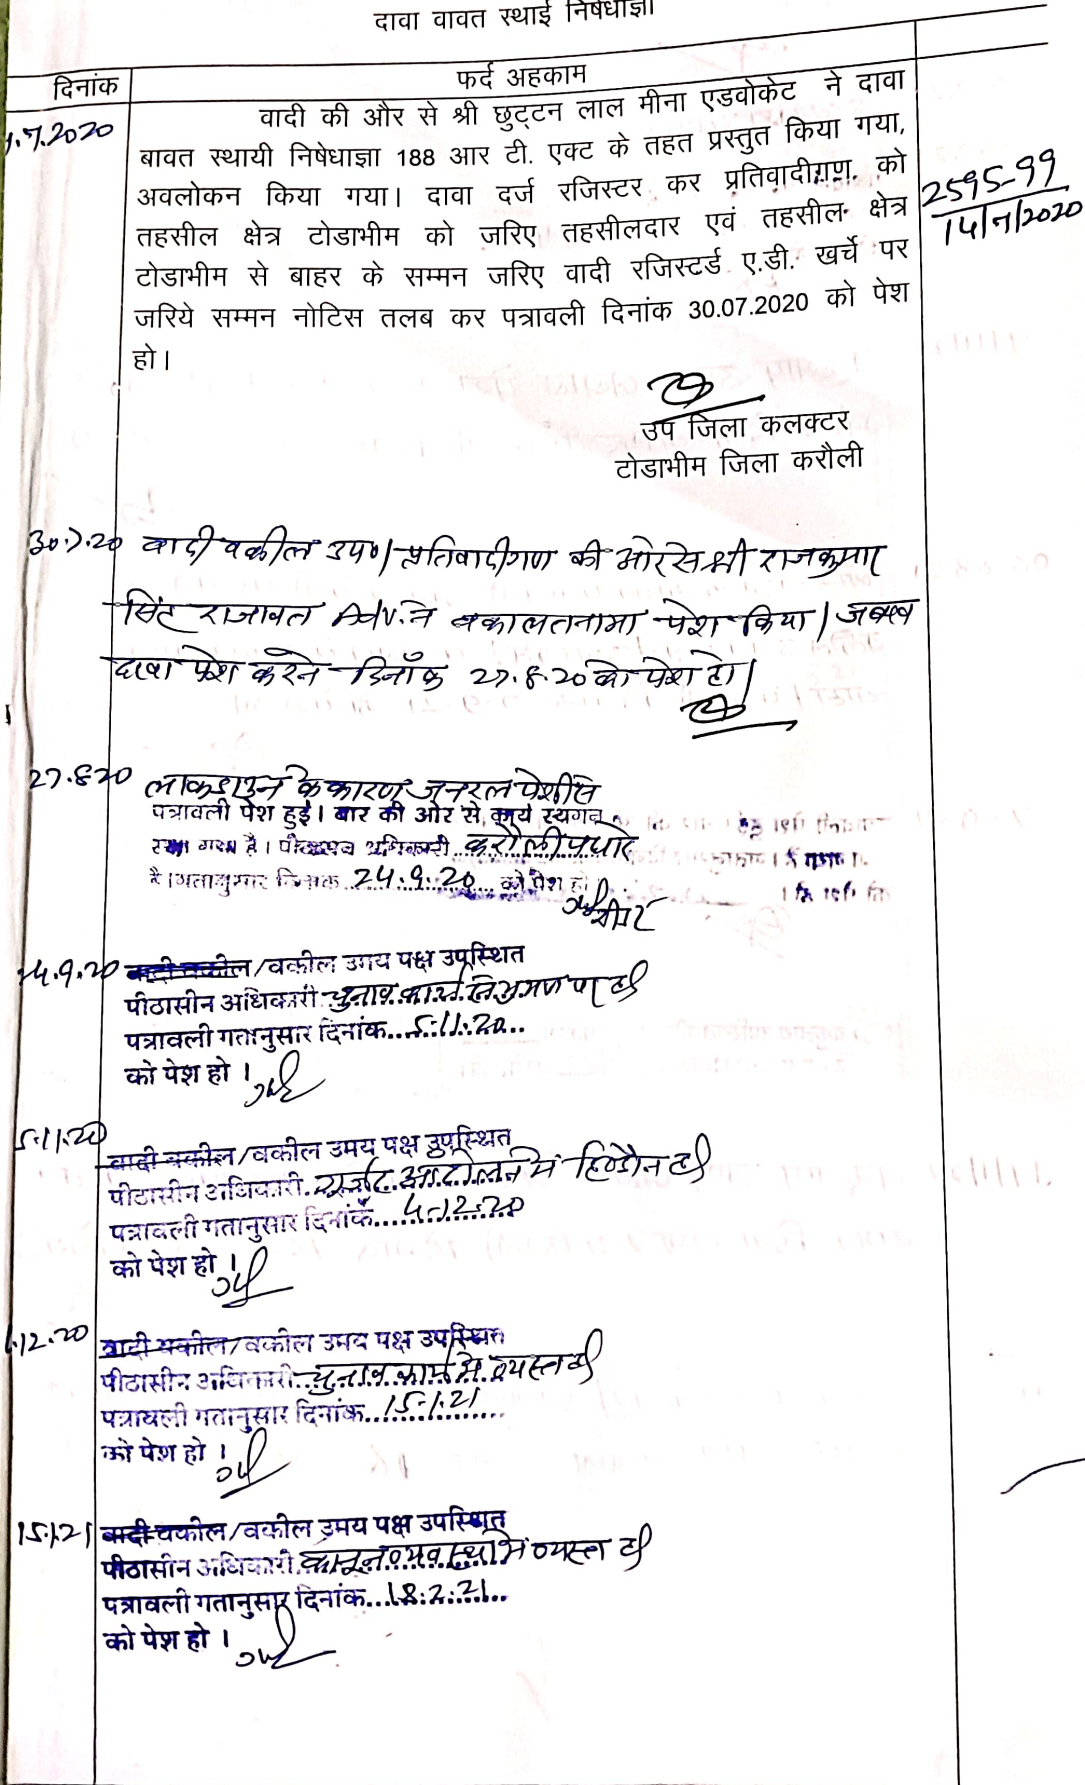 दावा वावत स्थाई निषेधाज्ञा
दिनांक
फर्द अहकाम
.7.2020
वादी की और से श्री छुट्टन लाल मीना एडवोकेट ने दावा
बावत स्थायी निषेधाज्ञा 188 आर टी. एक्ट के तहत प्रस्तुत किया गया,
अवलोकन किया गया। दावा दर्ज रजिस्टर कर प्रतिवादीगण को
तहसील क्षेत्र टोडाभीम को जरिए तहसीलदार एवं तहसील क्षेत्र
टोडाभीम से बाहर के सम्मन जरिए वादी रजिस्टर्ड ए.डी. खर्चे पर
जरिये सम्मन नोटिस तलब कर पत्रावली दिनांक 30.07.2020 को पेश
हो।
2595-99
14/7/2020
उप जिला कलक्टर
टोडाभीम जिला करौली
30.7.20 वादी वकील उप०/प्रतिवादीगण की ओर से श्री राजकुमार
सिंह राजावत Adv. ने वकालतनामा पेश किया। जबाव
दावा पेश करने दिनाँक 27.8.20 को पेश हो।
27.8.20 लाकडाउन के कारण जनरल पेशी से
पत्रावली पेश हुई। बार की ओर से कार्य स्थगन
रखा गया है। पीठासीन अधिकारी करौली पधारे
है। गतानुसार दिनांक 24.9.20 को पेश हो
24.9.20 वादी वकील/वकील उभय पक्ष उपस्थित
पीठासीन अधिकारी चुनाव कार्य भ्रमण पर है।
पत्रावली गतानुसार दिनांक...5.11.20...
को पेश हो।
5.11.20
वादी वकील/वकील उभय पक्ष उपस्थित
पीठासीन अधिकारी. गुर्जर आंदोलन में हिण्डौन है।
पत्रावली गतानुसार दिनांक....4.12.20
को पेश हो।
.12.20 वादी वकील/वकील उभय पक्ष उपस्थित
पीठासीन अधिकारी...चुनाव कार्य में व्यस्त है।
पत्रावली गतानुसार दिनांक...15.1.21......
को पेश हो।
15.1.21 वादी वकील/वकील उभय पक्ष उपस्थित
पीठासीन अधिकारी. कानून व्यवस्था में व्यस्त है।
पत्रावली गतानुसार दिनांक...18.2.21...
को पेश हो।